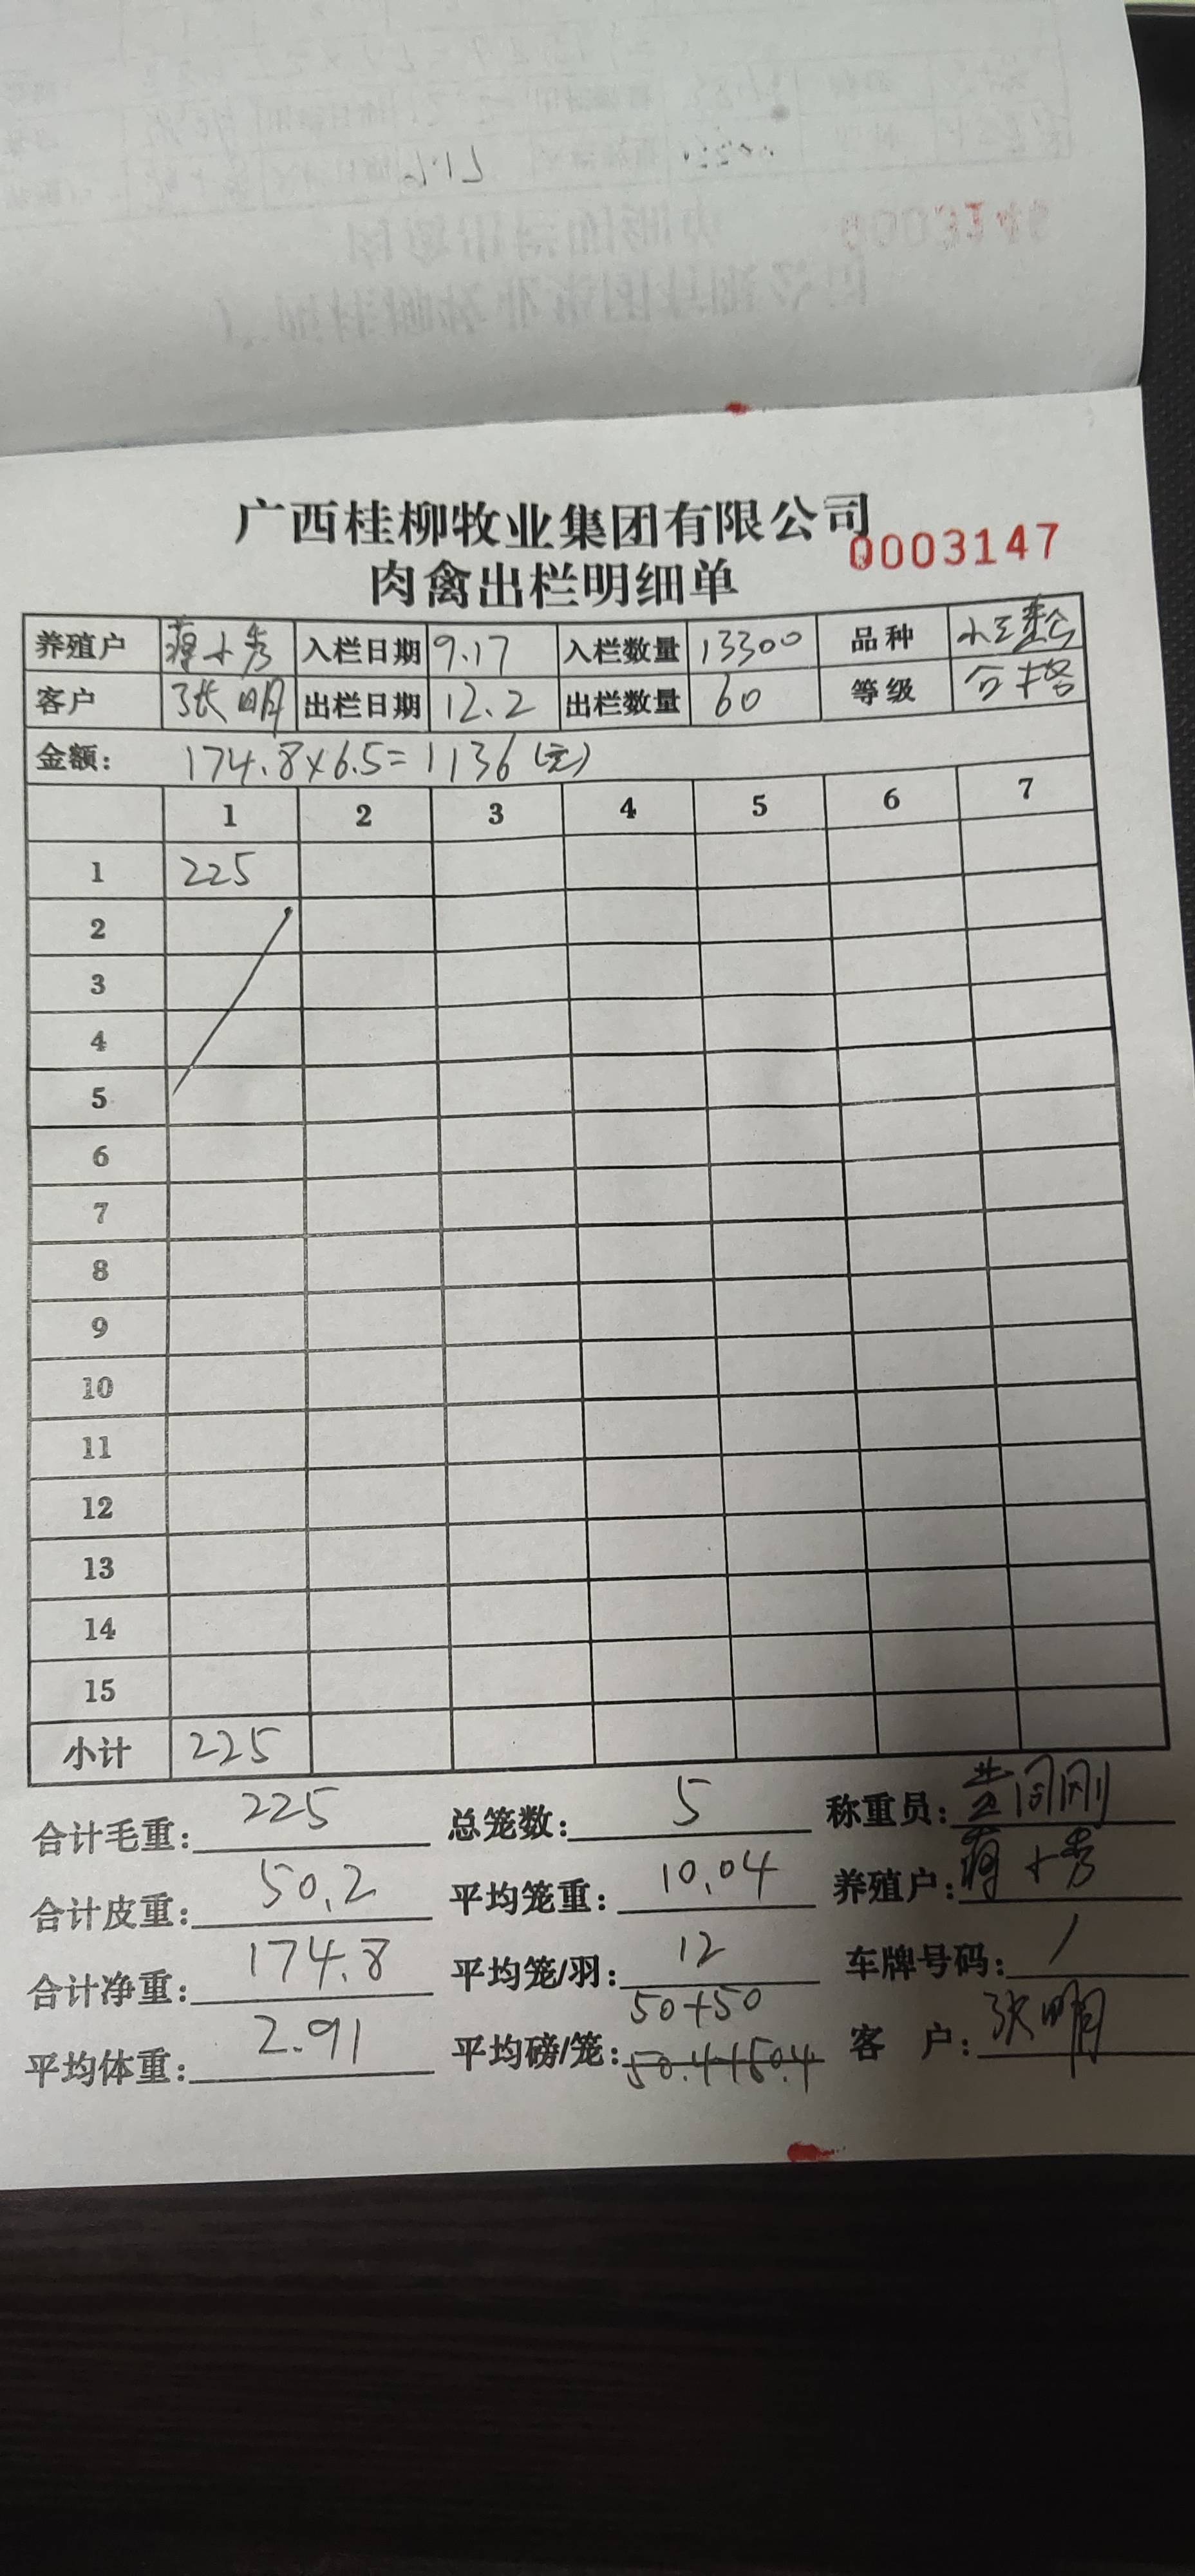 广西桂柳牧业集团有限公司
0003147
肉禽出栏明细单
养殖户 蒋小秀 入栏日期 9.17 入栏数量 13300 品种
客户 张明 出栏日期 12.2 出栏数量 60 等级 合格
金额: 174.8×6.5=1136(元)
1 2 3 4 5 6 7
1 225
2
3
4
5
6
7
8
9
10
11
12
13
14
15
小计 225
合计毛重: 225 总笼数: 5 称重员:
合计皮重: 50.2 平均笼重: 10.04 养殖户: 蒋小秀
合计净重: 174.8 平均笼/羽: 12 车牌号码: /
50+50
平均体重: 2.91 平均磅/笼: 50.4+50.4 客户: 张明